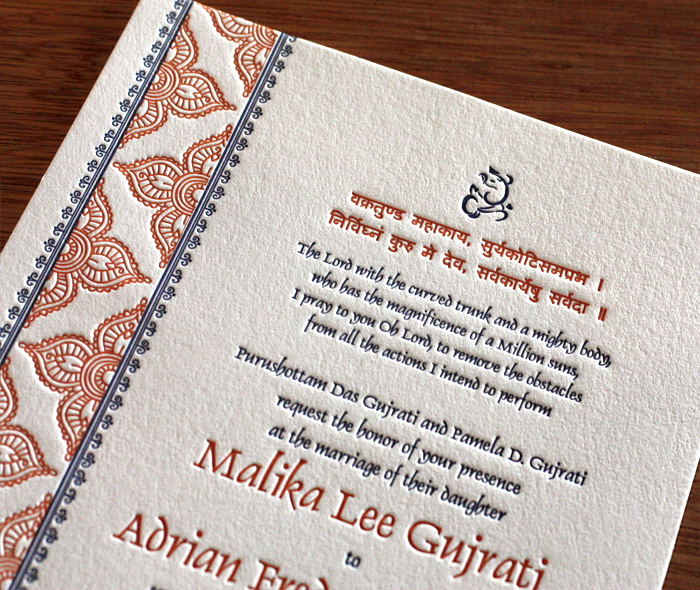 वक्रतुण्ड महाकाय, सुर्यकोटिसमप्रभ ।
निर्विघ्नं कुरु मे देव, सर्वकार्येषु सर्वदा ॥
The Lord with the curved trunk and a mighty body,
who has the magnificence of a Million suns,
I pray to you Oh Lord, to remove the obstacles
from all the actions I intend to perform
Purushottam Das Gujrati and Pamela D. Gujrati
request the honor of your presence
at the marriage of their daughter
Malika Lee Gujrati
to
Adrian